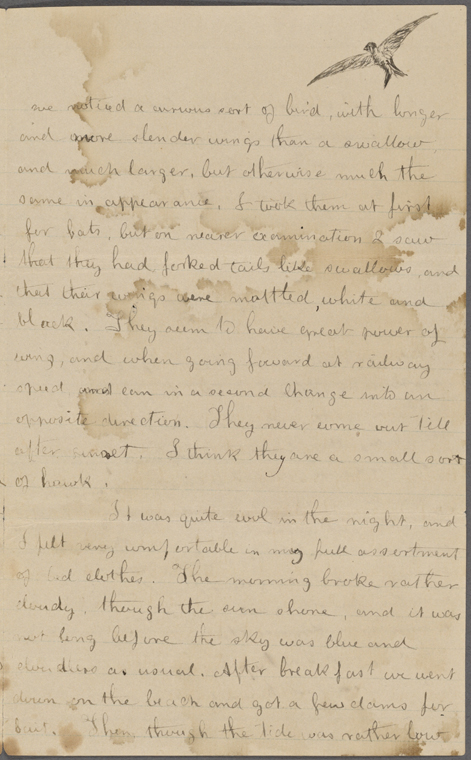 we noticed a curious sort of bird, with longer
and more slender wings than a swallow,
and much larger, but otherwise much the
same in appearance. I took them at first
for bats, but on nearer examination I saw
that they had forked tails like swallows, and
that their wings were mottled, white and
black. They seem to have great power of
wing, and when going forward at railway
speed, can in a second change into an
opposite direction. They never come out till
after sunset. I think they are a small sort
of hawk.
It was quite cool in the night, and
I felt very comfortable in my full assortment
of bed clothes. The morning broke rather
cloudy, though the sun shone, and it was
not long before the sky was blue and
cloudless as usual. After breakfast we went
down on the beach and got a few clams for
bait. Then though the tide was rather low